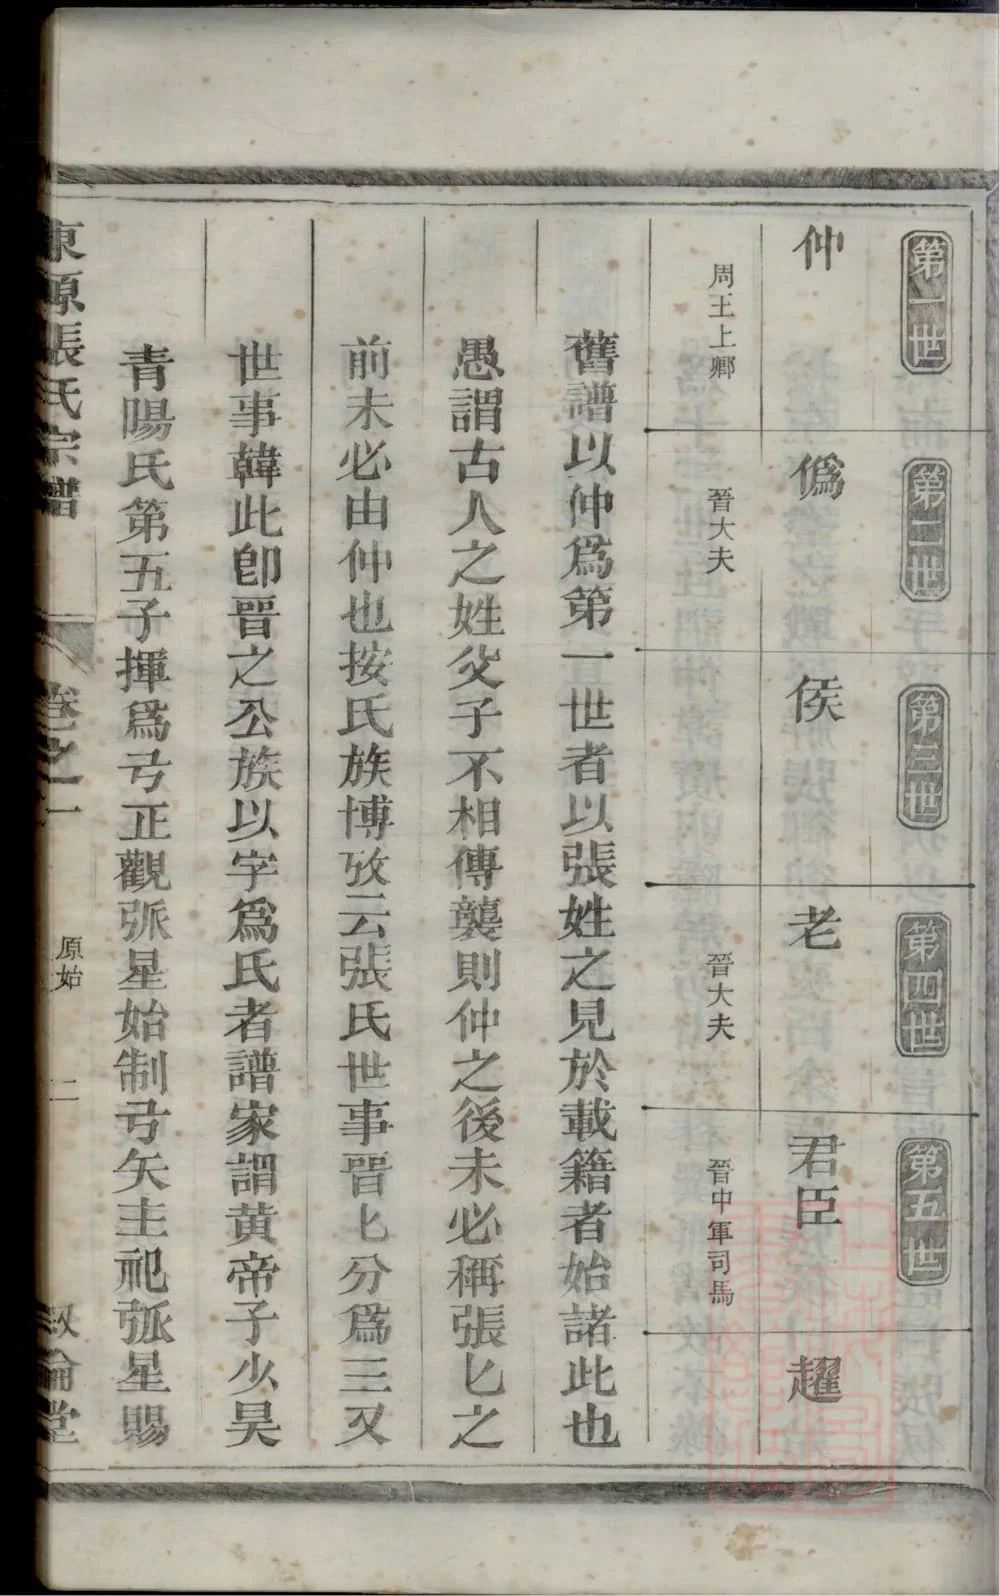 第一世
第二世
第三世
第四世
第五世
仲
僞
侯
老
君臣
趯
周王上卿
晉大夫
晉大夫
晉中軍司馬
舊譜以仲爲第一世者以張姓之見於載籍者始諸此也
愚謂古人之姓父子不相傳襲則仲之後未必稱張匕之
前未必由仲也按氏族博攷云張氏世事晋匕分爲三又
世事韓此卽晋之公族以字爲氏者譜家謂黄帝子少昊
青陽氏第五子揮爲弓正觀弧星始制弓矢主祀弧星賜
東源張氏宗譜
卷之一
原始
二
叙倫堂